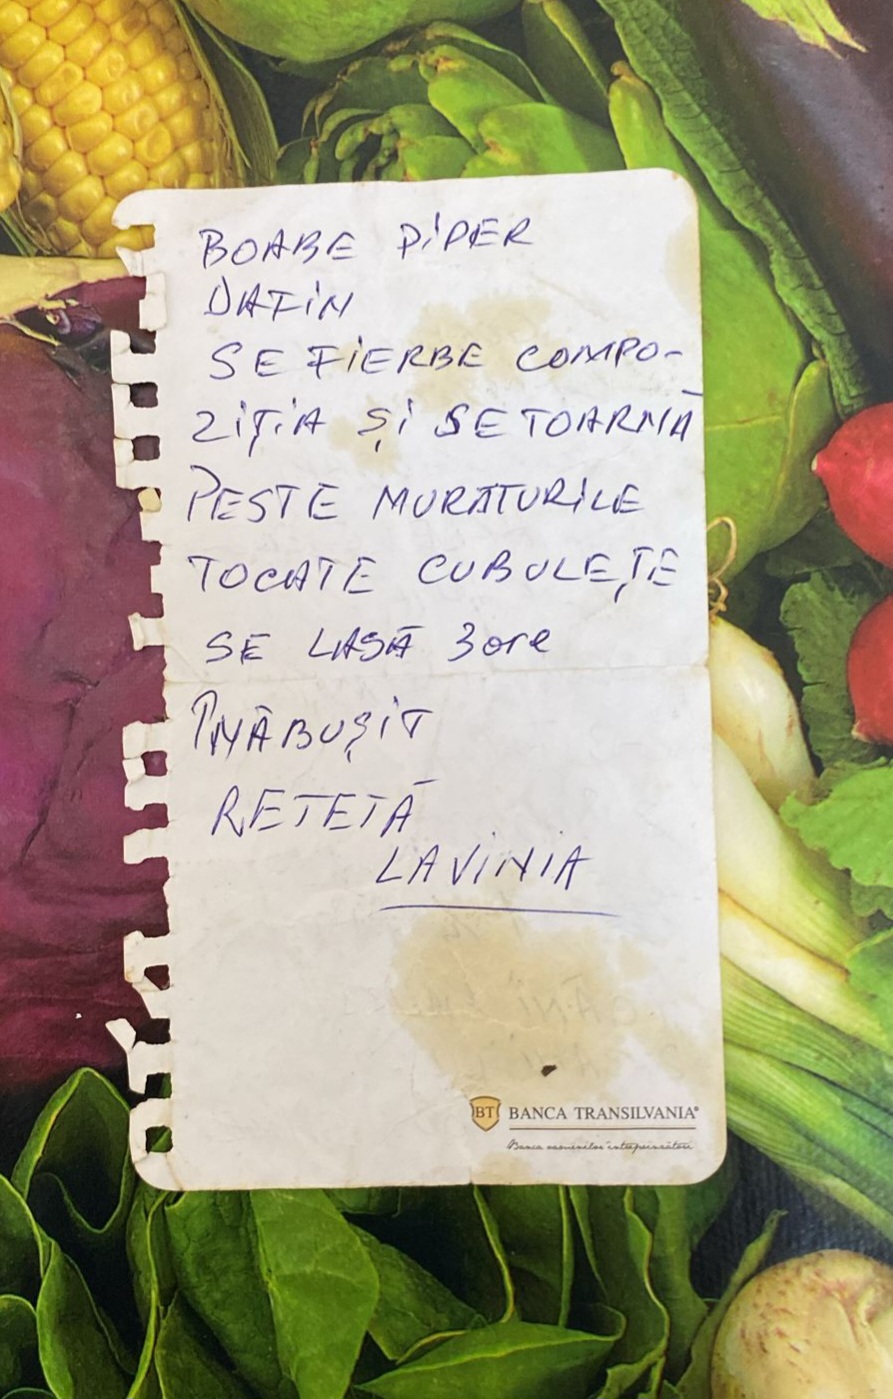 BOABE PIPER
DAFIN
SE FIERBE COMPO-
ZIȚIA ȘI SE TOARNĂ
PESTE MURĂTURILE
TOCATE CUBULEȚE
SE LASĂ 3 ore
ÎNĂBUȘIT
RETETĂ
LAVINIA
BT BANCA TRANSILVANIA®
Banca oamenilor întreprinzători